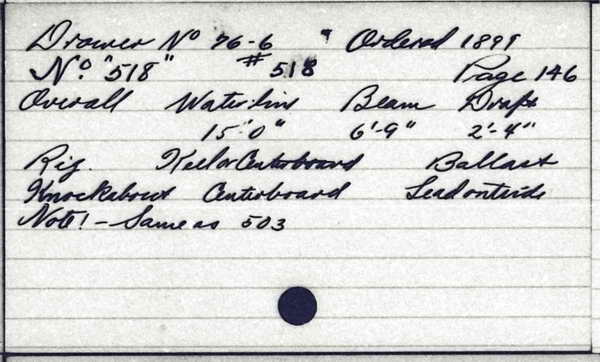 Drawer No 76-6 " Ordered 1899
No. "518" #518 Page 146
Overall Waterline Beam Draft
15'0" 6'-9" 2'-4"
Rig. Keel or Centerboard Ballast
Knockabout Centerboard Lead outside
Note! - Same as 503